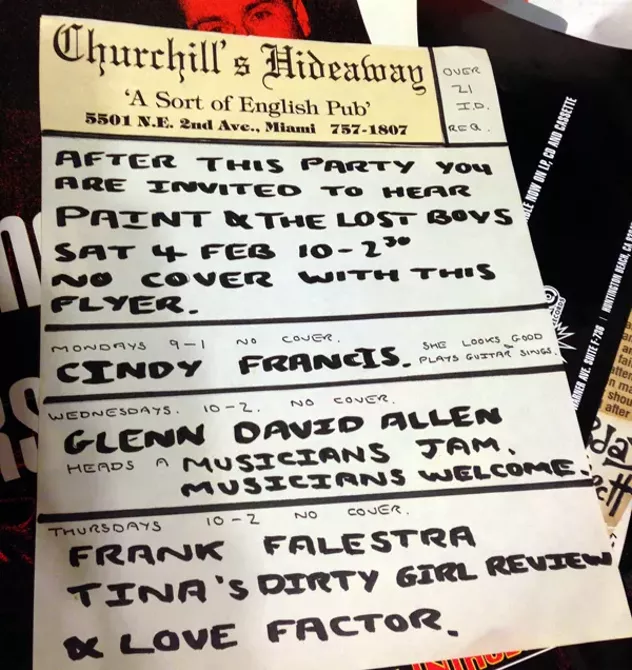 Churchill's Hideaway
'A Sort of English Pub'
5501 N.E. 2nd Ave., Miami 757-1807
OVER
21
I.D.
REQ.
AFTER THIS PARTY YOU
ARE INVITED TO HEAR
PAINT & THE LOST BOYS
SAT 4 FEB 10-2³⁰
NO COVER WITH THIS
FLYER.
MONDAYS 9-1 NO COVER.
CINDY FRANCIS. SHE LOOKS GOOD
PLAYS GUITAR SINGS.
WEDNESDAYS. 10-2. NO COVER.
GLENN DAVID ALLEN
HEADS A MUSICIANS JAM.
MUSICIANS WELCOME.
THURSDAYS 10-2 NO COVER.
FRANK FALESTRA
TINA'S DIRTY GIRL REVIEW
& LOVE FACTOR.
NOW ON LP, CD AND CASSETTE
AVE. SUITE F-738 | HUNTINGTON BEACH, CA
after